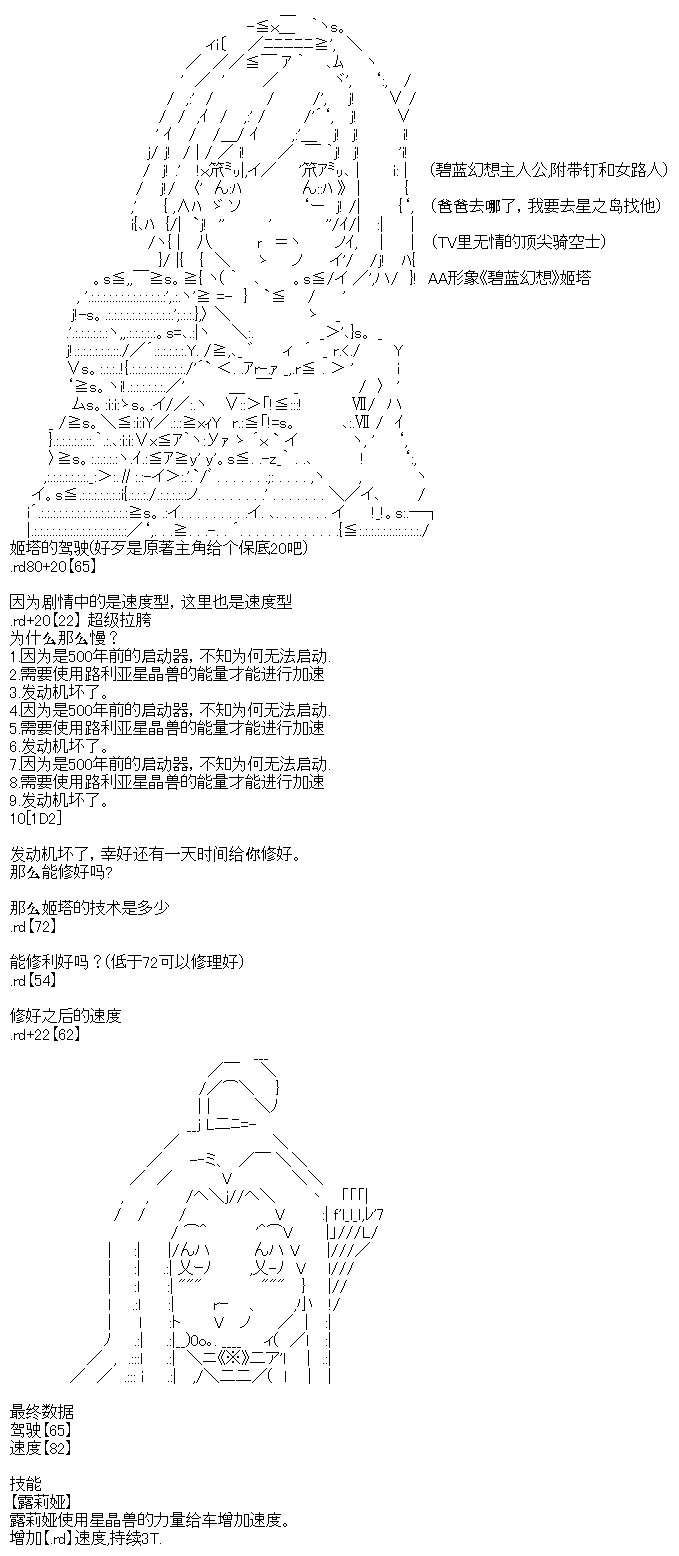 (碧蓝幻想主人公,附带钉和女路人)
(爸爸去哪了，我要去星之岛找他)
(TV里无情的顶尖骑空士)
AA形象《碧蓝幻想》姬塔
姬塔的驾驶(好歹是原著主角给个保底20吧)
.rd80+20【65】
因为剧情中的是速度型，这里也是速度型
.rd+20【22】 超级拉胯
为什么那么慢？
1.因为是500年前的启动器，不知为何无法启动.
2.需要使用路利亚星晶兽的能量才能进行加速
3.发动机坏了。
4.因为是500年前的启动器，不知为何无法启动.
5.需要使用路利亚星晶兽的能量才能进行加速
6.发动机坏了。
7.因为是500年前的启动器，不知为何无法启动.
8.需要使用路利亚星晶兽的能量才能进行加速
9.发动机坏了。
10[1D2]
发动机坏了，幸好还有一天时间给你修好。
那么能修好吗?
那么姬塔的技术是多少
.rd【72】
能修利好吗？(低于72可以修理好)
.rd【54】
修好之后的速度
.rd+22【62】
最终数据
驾驶【65】
速度【82】
技能
【露莉娅】
露莉娅使用星晶兽的力量给车增加速度。
增加【.rd】速度,持续3T.